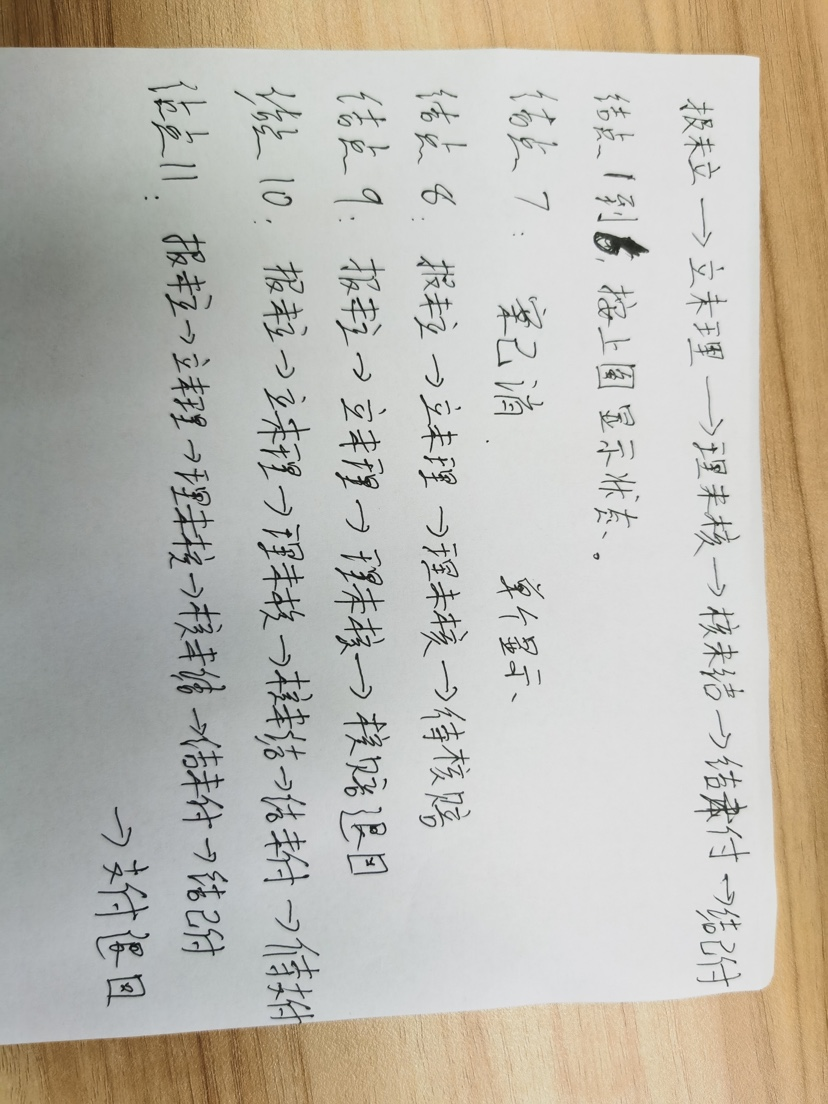 报未立→立未理→理未核→核未结→结未付→结已付
结点1到6,按上图显示状态。
结点7: 案已消. 单个显示、
结点8: 报未立→立未理→理未核→待核赔
结点9: 报未立→立未理→理未核→核赔退回
结点10: 报未立→立未理→理未核→核未结→结未付→待支付
结点11: 报未立→立未理→理未核→核未结→结未付→结已付
→支付退回